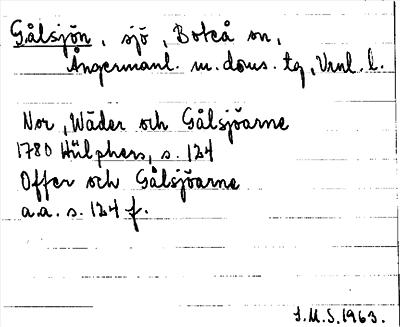 Gålsjön, sjö, Boteå sn,
Ångermanl. m. doms. tg, Vnl. l.
Nor, Wäder och Gålsjöarne
1780 Hülphers, s. 124
Offer och Gålsjöarne
a.a. s. 124 f.
S.M.S. 1963.